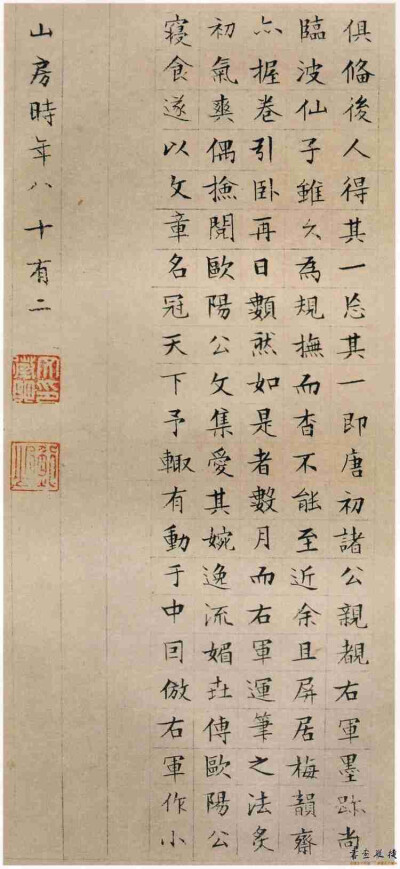 俱俻後人得其一忘其一即唐初諸公親覩右軍墨跡尚
臨波仙子雖久為規撫而杳不能至近余且屏居梅韻齋
亦握卷引卧再日顙然如是者數月而右軍運筆之法炙
初氣爽偶撿閱歐陽公文集愛其婉逸流媚世傳歐陽公
寢食遂以文章名冠天下予輙有動于中囙倣右軍作小
山房時年八十有二